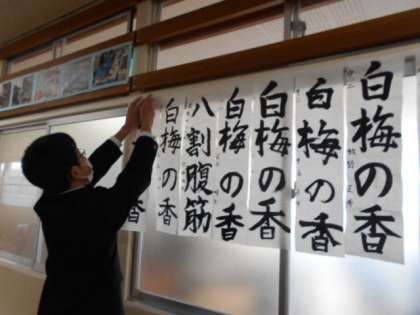 白梅の香
白梅の香
白梅の香
白梅の香
八割腹筋
白梅の香
香